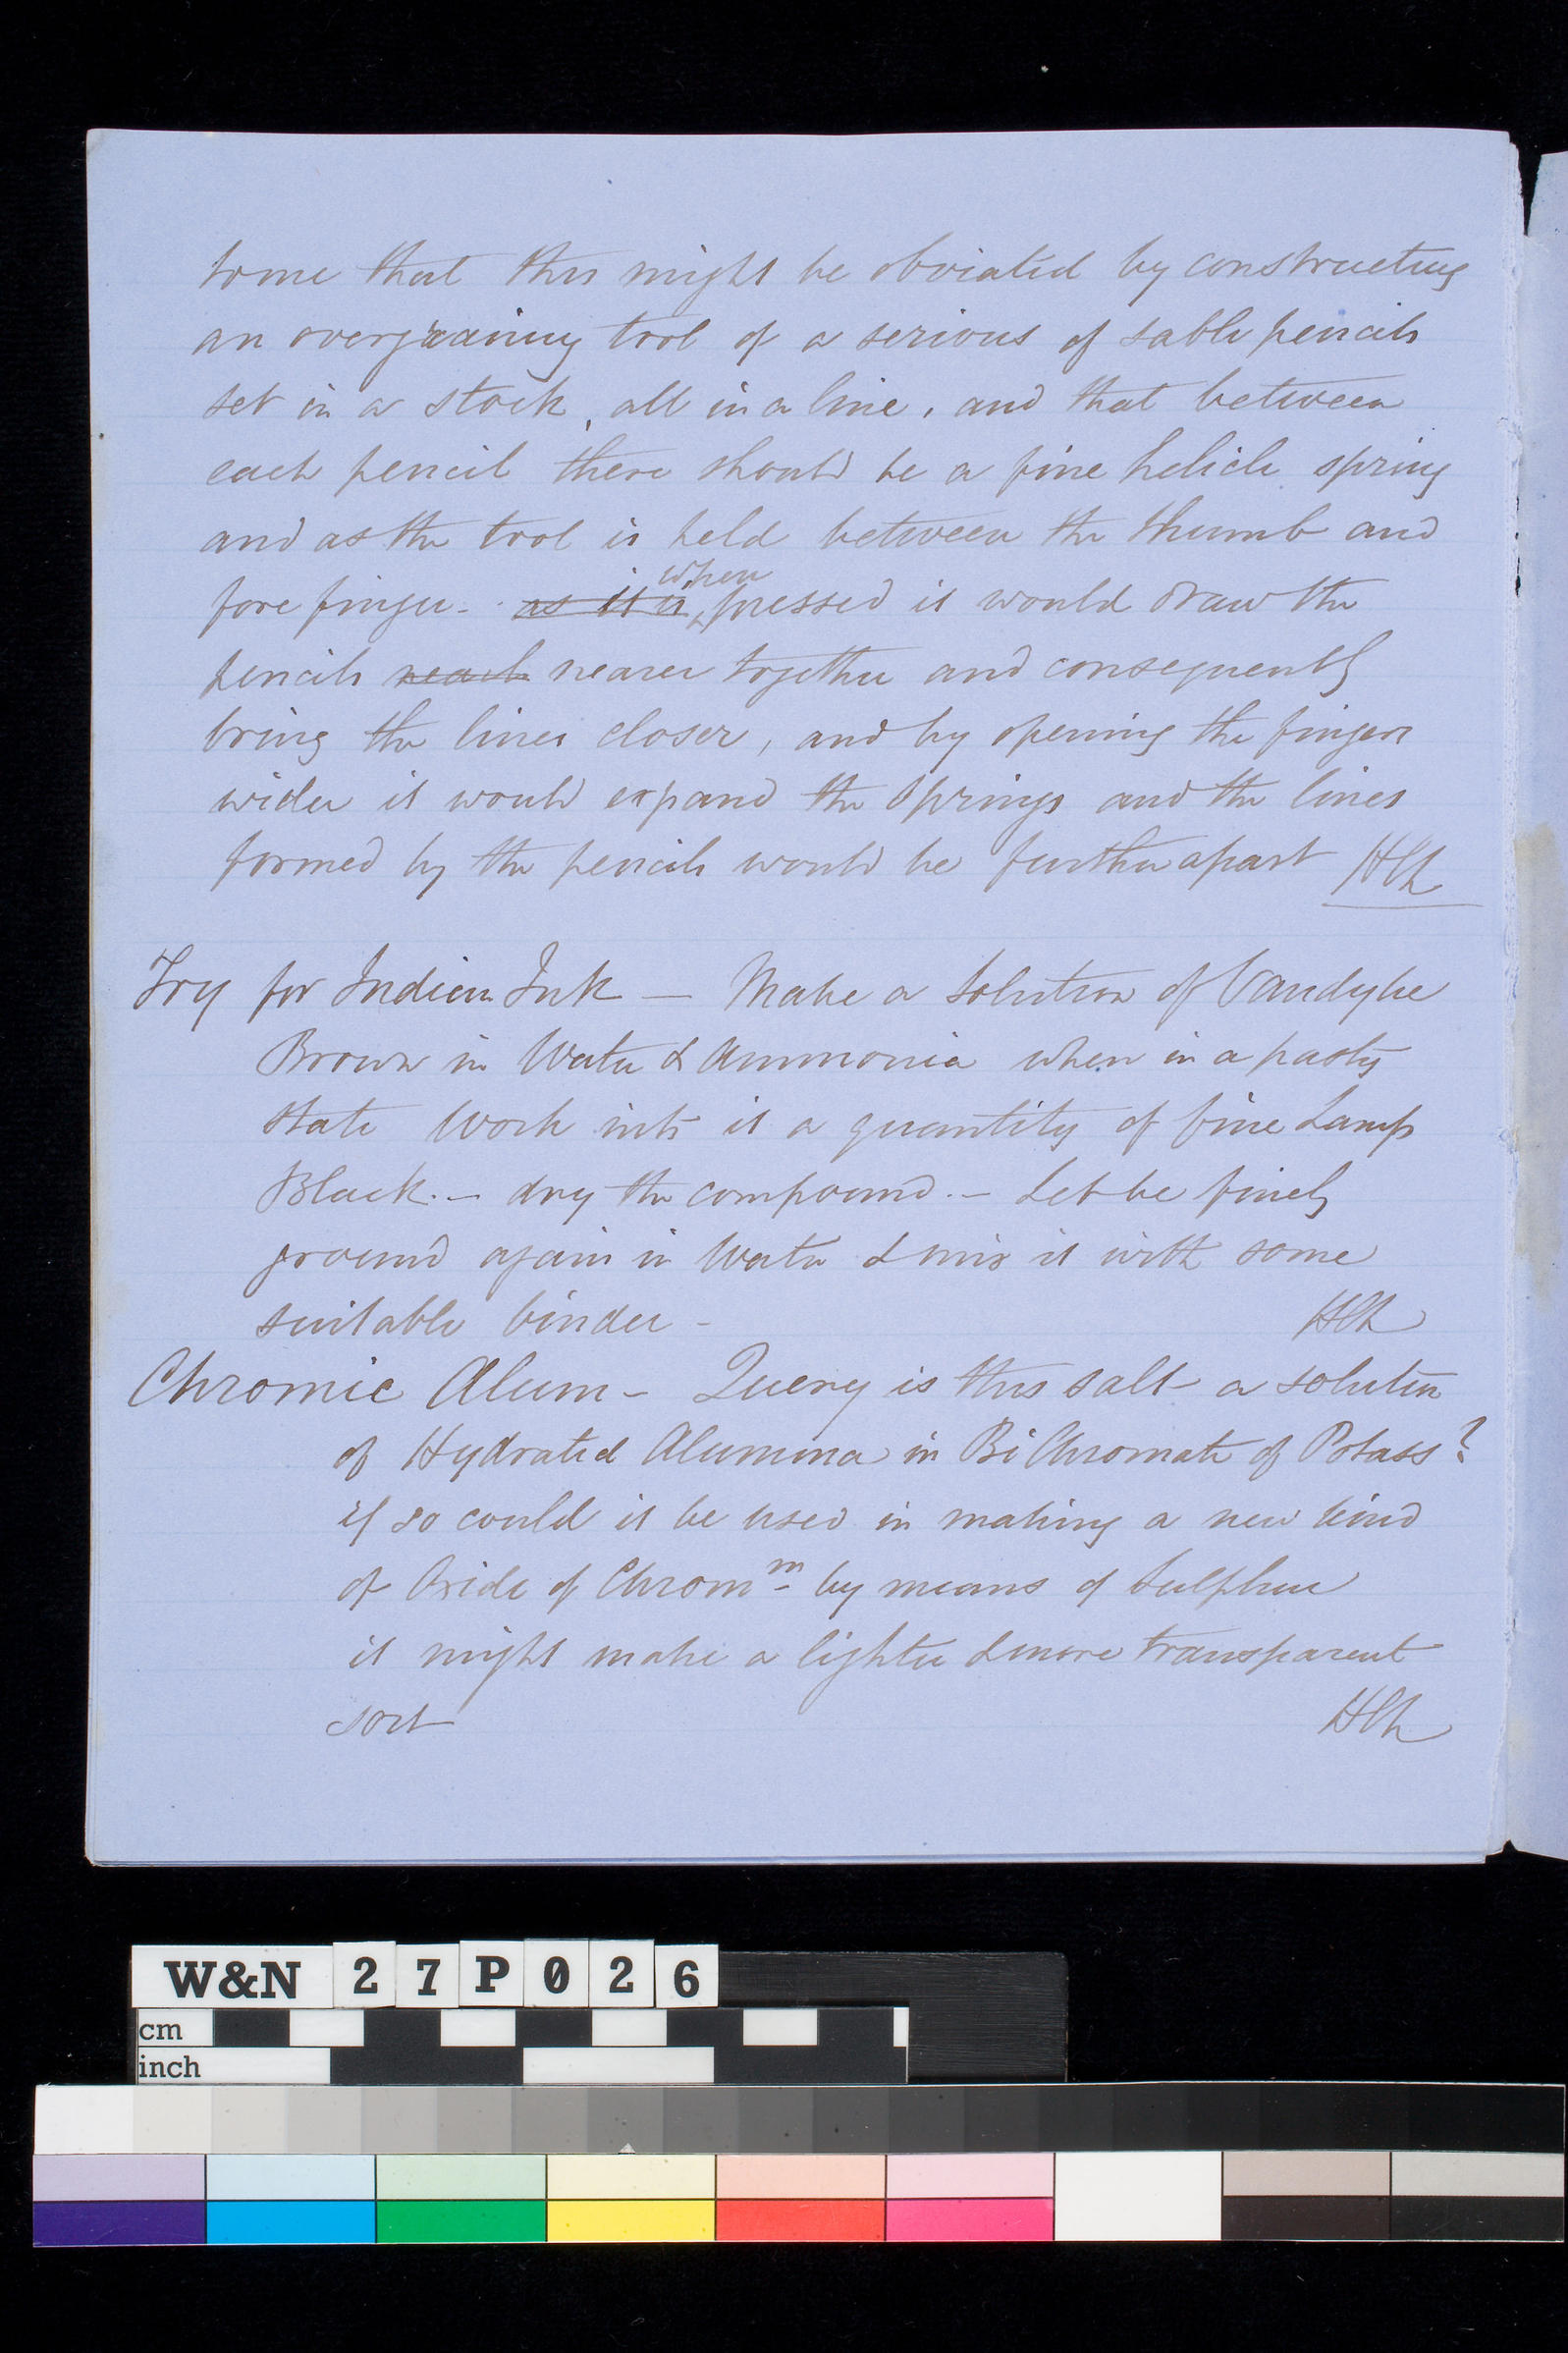 to me that this might be obviated by constructing
an overgraining tool of a serious of sable pencils
set in a stock, all in a line, and that between
each pencil there should be a fine helicle spring
and as the tool is held between the thumb and
fore finger - as it is when pressed it would draw the
pencils neach nearer together and consequently
bring the lines closer, and by opening the fingers
wider it would expand the springs and the lines
formed by the pencils would be further apart HCh
Try for Indian Ink — Make a Solution of Vandyke
Brown in Water & Ammonia when in a pasty
state Work into it a quantity of fine Lamp
Black. — dry the compound. — Let be finely
ground again in Water & mix it with some
suitable binder - HCh
Chromic Alum - Query is this salt a solution
of Hydrated Alumina in BiChromate of Potass?
if so could it be used in making a new kind
of Oxide of Chromm by means of Sulphur
it might make a lighter & more transparent
sort HCh
W&N 27P026
cm
inch